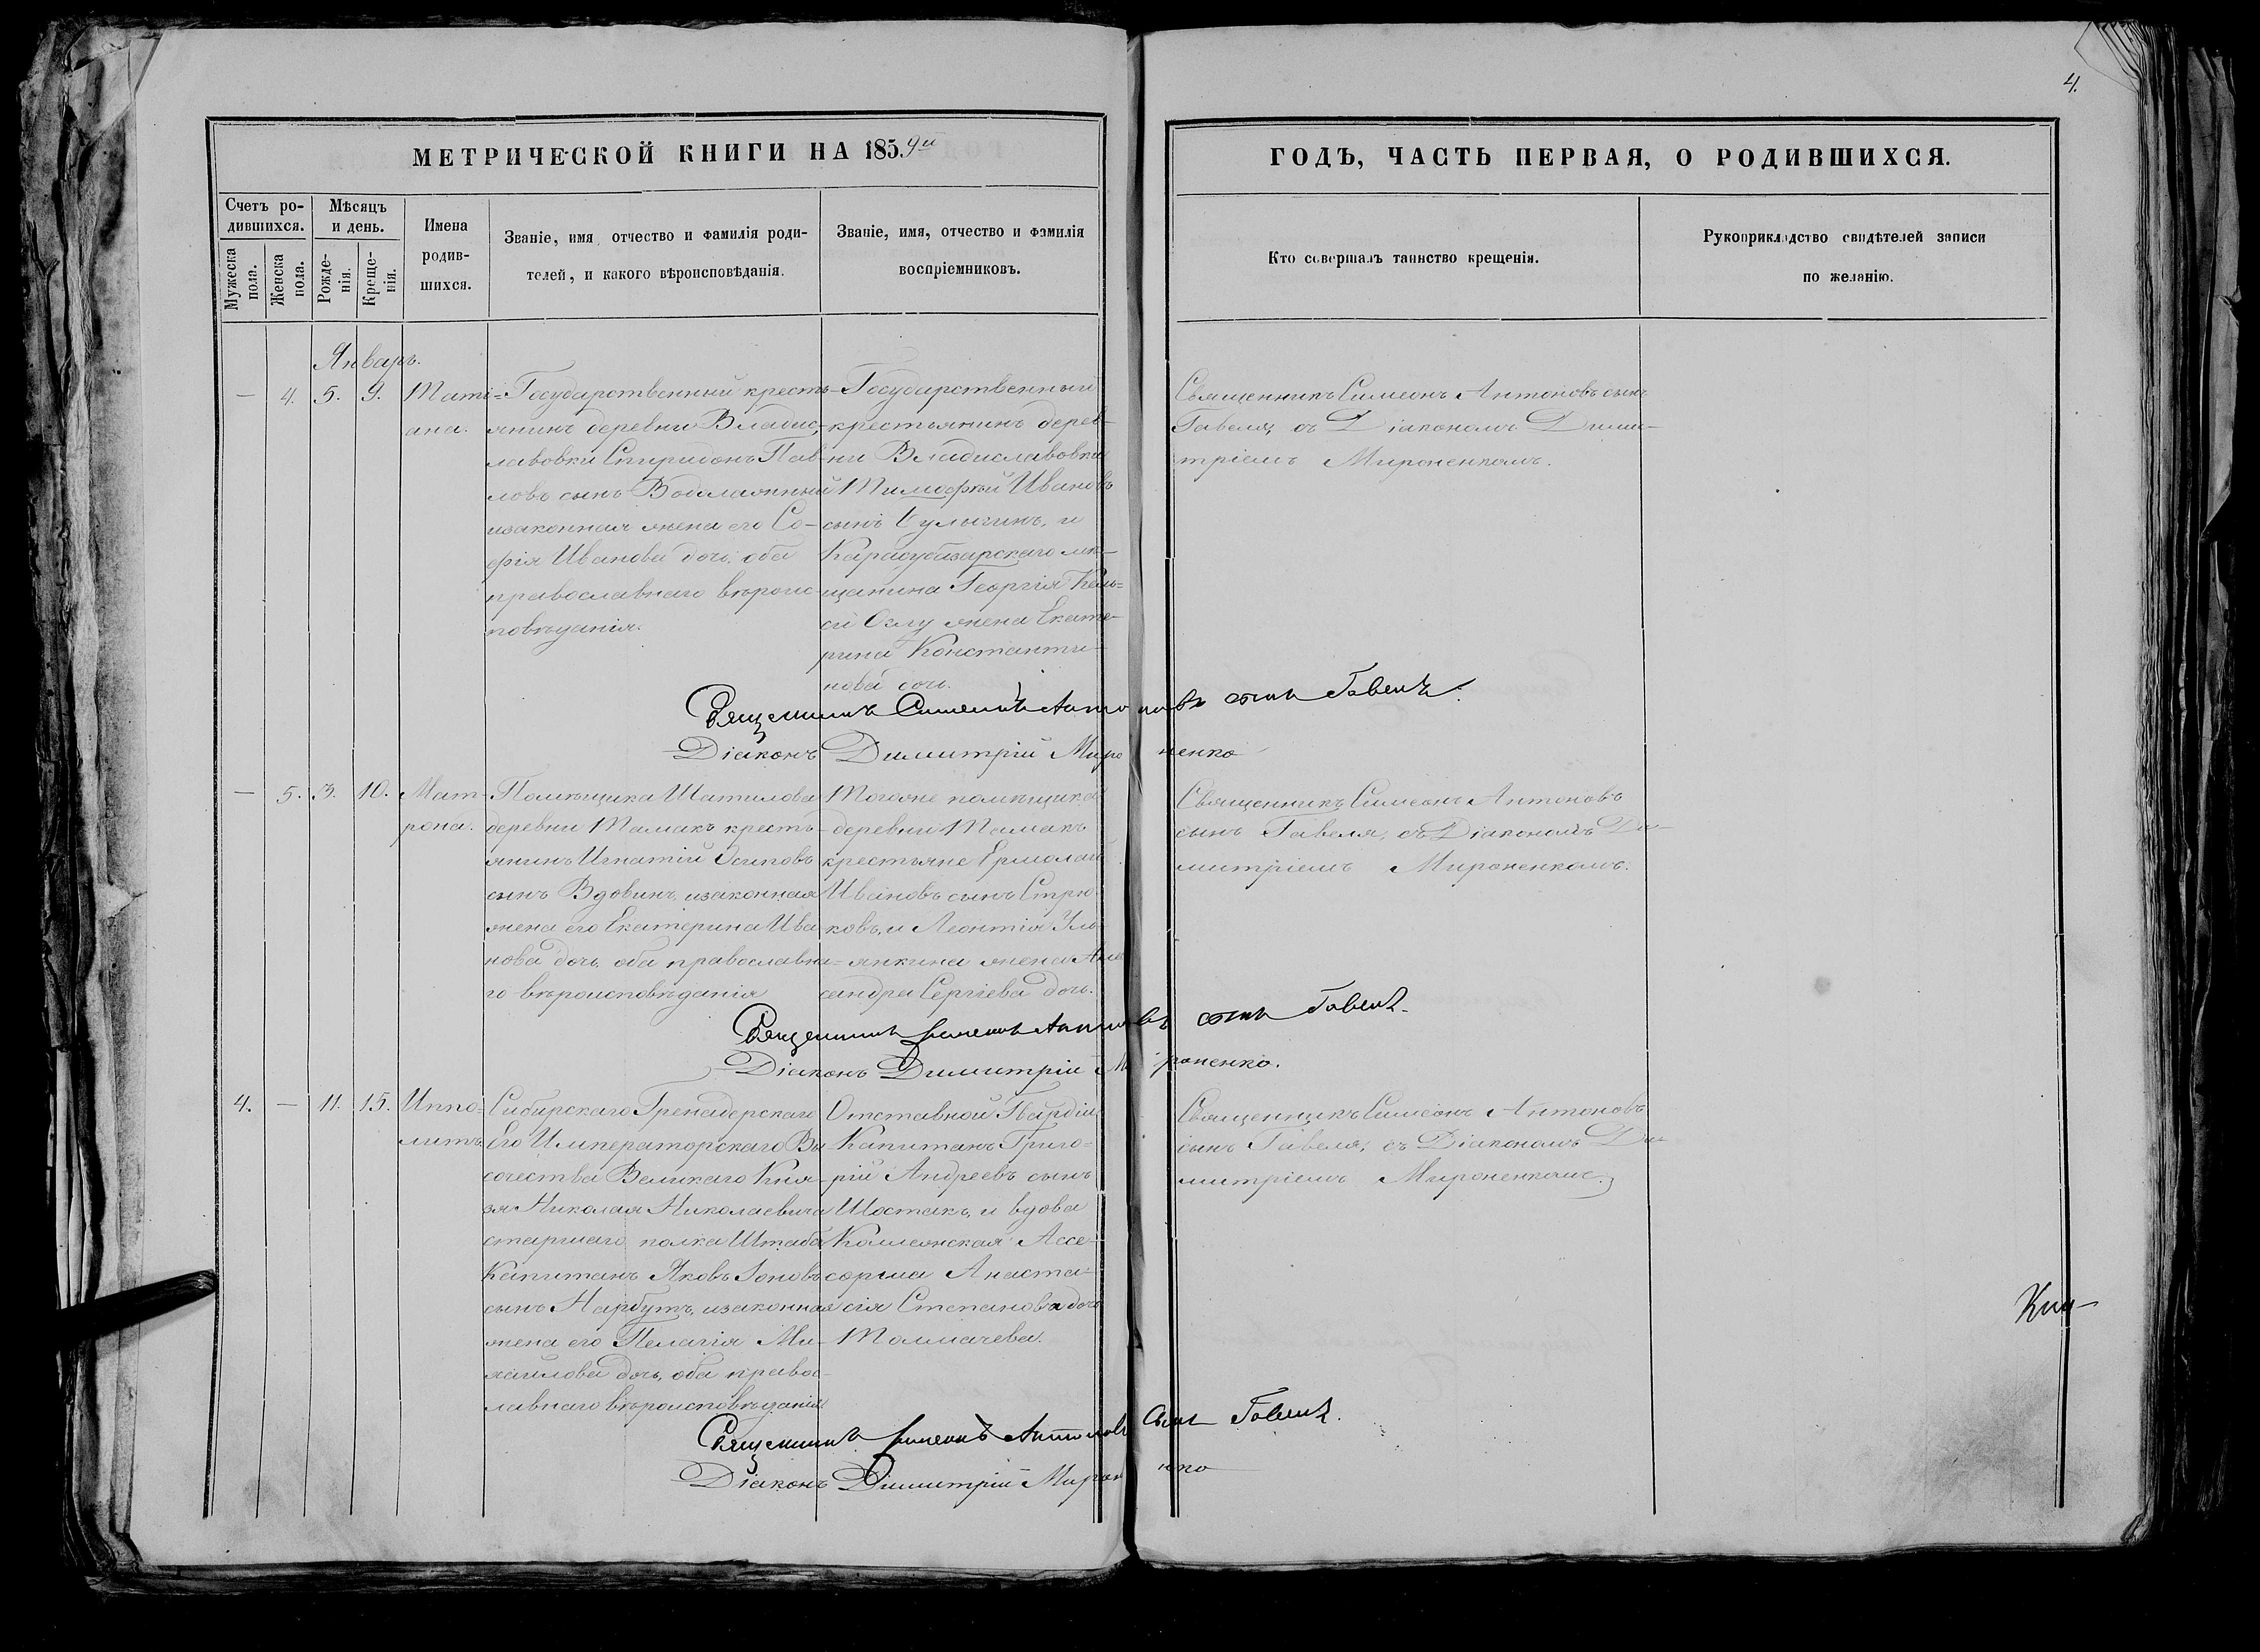 4.
МЕТРИЧЕСКОЙ КНИГИ НА 1859й
ГОДЪ, ЧАСТЬ ПЕРВАЯ, О РОДИВШИХСЯ.
Счетъ ро-
дившихся.
Мужеска
пола.
Женска
пола.
Мѣсяцъ
и день.
Рожде-
нія.
Креще-
нія.
Имена
родив-
шихся.
Званіе, имя, отчество и фамилія роди-
телей, и какого вѣроисповѣданія.
Званіе, имя, отчество и фамилія
воспріемниковъ.
Кто совершалъ таинство крещенія.
Рукоприкладство свидѣтелей записи
по желанію.
Январь.
— 4. 5. 9.
Тати=
ана.
Государственный кресть-
янинъ деревни Владис-
лавовки Спиридонъ Пав-
ловъ сынъ
и законная жена его Со-
фія Иванова дочь, оба
православнаго вѣроис-
повѣданія.
Государственный
крестьянинъ дерев-
ни Владиславовки
Тимофѣй Ивановъ
сынъ Булыгинъ, и
Карасубазарскаго мѣ-
щанина Георгія Кель=
си Оглу жена Екате-
рина Константи-
нова дочь.
Священникъ Симеонъ Антоновъ сынъ
Гавеля, съ Діакономъ Дими-
тріемъ Мироненкомъ.
Священникъ Симеонъ Антоновъ сынъ Гавеля.
Діаконъ Димитрій Мироненко
— 5. 3. 10.
Мат-
рона.
Помѣщика Шатилова
деревни Тамакъ кресть-
янинъ Игнатій Осиповъ
сынъ Вдовинъ, и законная
жена его Екатерина Ива-
нова дочь, оба православна=
го вѣроисповѣданія
Тогоже помѣщика
деревни Тамакъ
крестьяне Ермолай
Ивановъ сынъ Стрю-
ковъ, и Леонтія Уль-
янкина жена Алек
сандра Сергіева дочь.
Священникъ Симеонъ Антоновъ
сынъ Гавеля, съ Діакономъ Ди-
митріемъ Мироненкомъ.
Священникъ Симеонъ Антоновъ сынъ Гавеля.
Діаконъ Димитрій Мироненко.
4. — 11. 15.
Иппо=
литъ.
Сибирскаго Гренадерскаго
Его Императорскаго Вы-
сочества Великаго Кня-
зя Николая Николаевича
старшаго полка Штабсъ
Капитанъ Яковъ Іоновъ
сынъ Нарбутъ, и законная
жена его Пелагія Ми-
хайлова дочь, оба правос-
лавнаго вѣроисповѣданія
Отставной Гвардіи
Капитанъ Григо-
рій Андреевъ сынъ
Шостакъ, и вдова
Коллежская Ассе-
сорша Анаста-
сія Степанова дочь
Толмачева.
Священникъ Симеонъ Антоновъ
сынъ Гавеля, съ Діакономъ Ди-
митріемъ Мироненкомъ.
Священникъ Симеонъ Антоновъ сынъ Гавеля.
Діаконъ Димитрій Мироненко